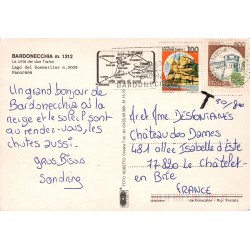 BARDONECCHIA m. 1312
La città dei due Trafori
Lago del Sommeiller m. 3009
Panorama
Un grand bonjour de
Bardonecchia où la
neige et le soleil sont
au rendez-vous, les
chutes aussi...
gros Bisous
Sandrine
100
BARDONECCHIA
T
Mr et Mme DESFONTAINES
Château des Dames
481 allée Isabelle d'Este
77820 Le Châtelet-
en Brie
FRANCE